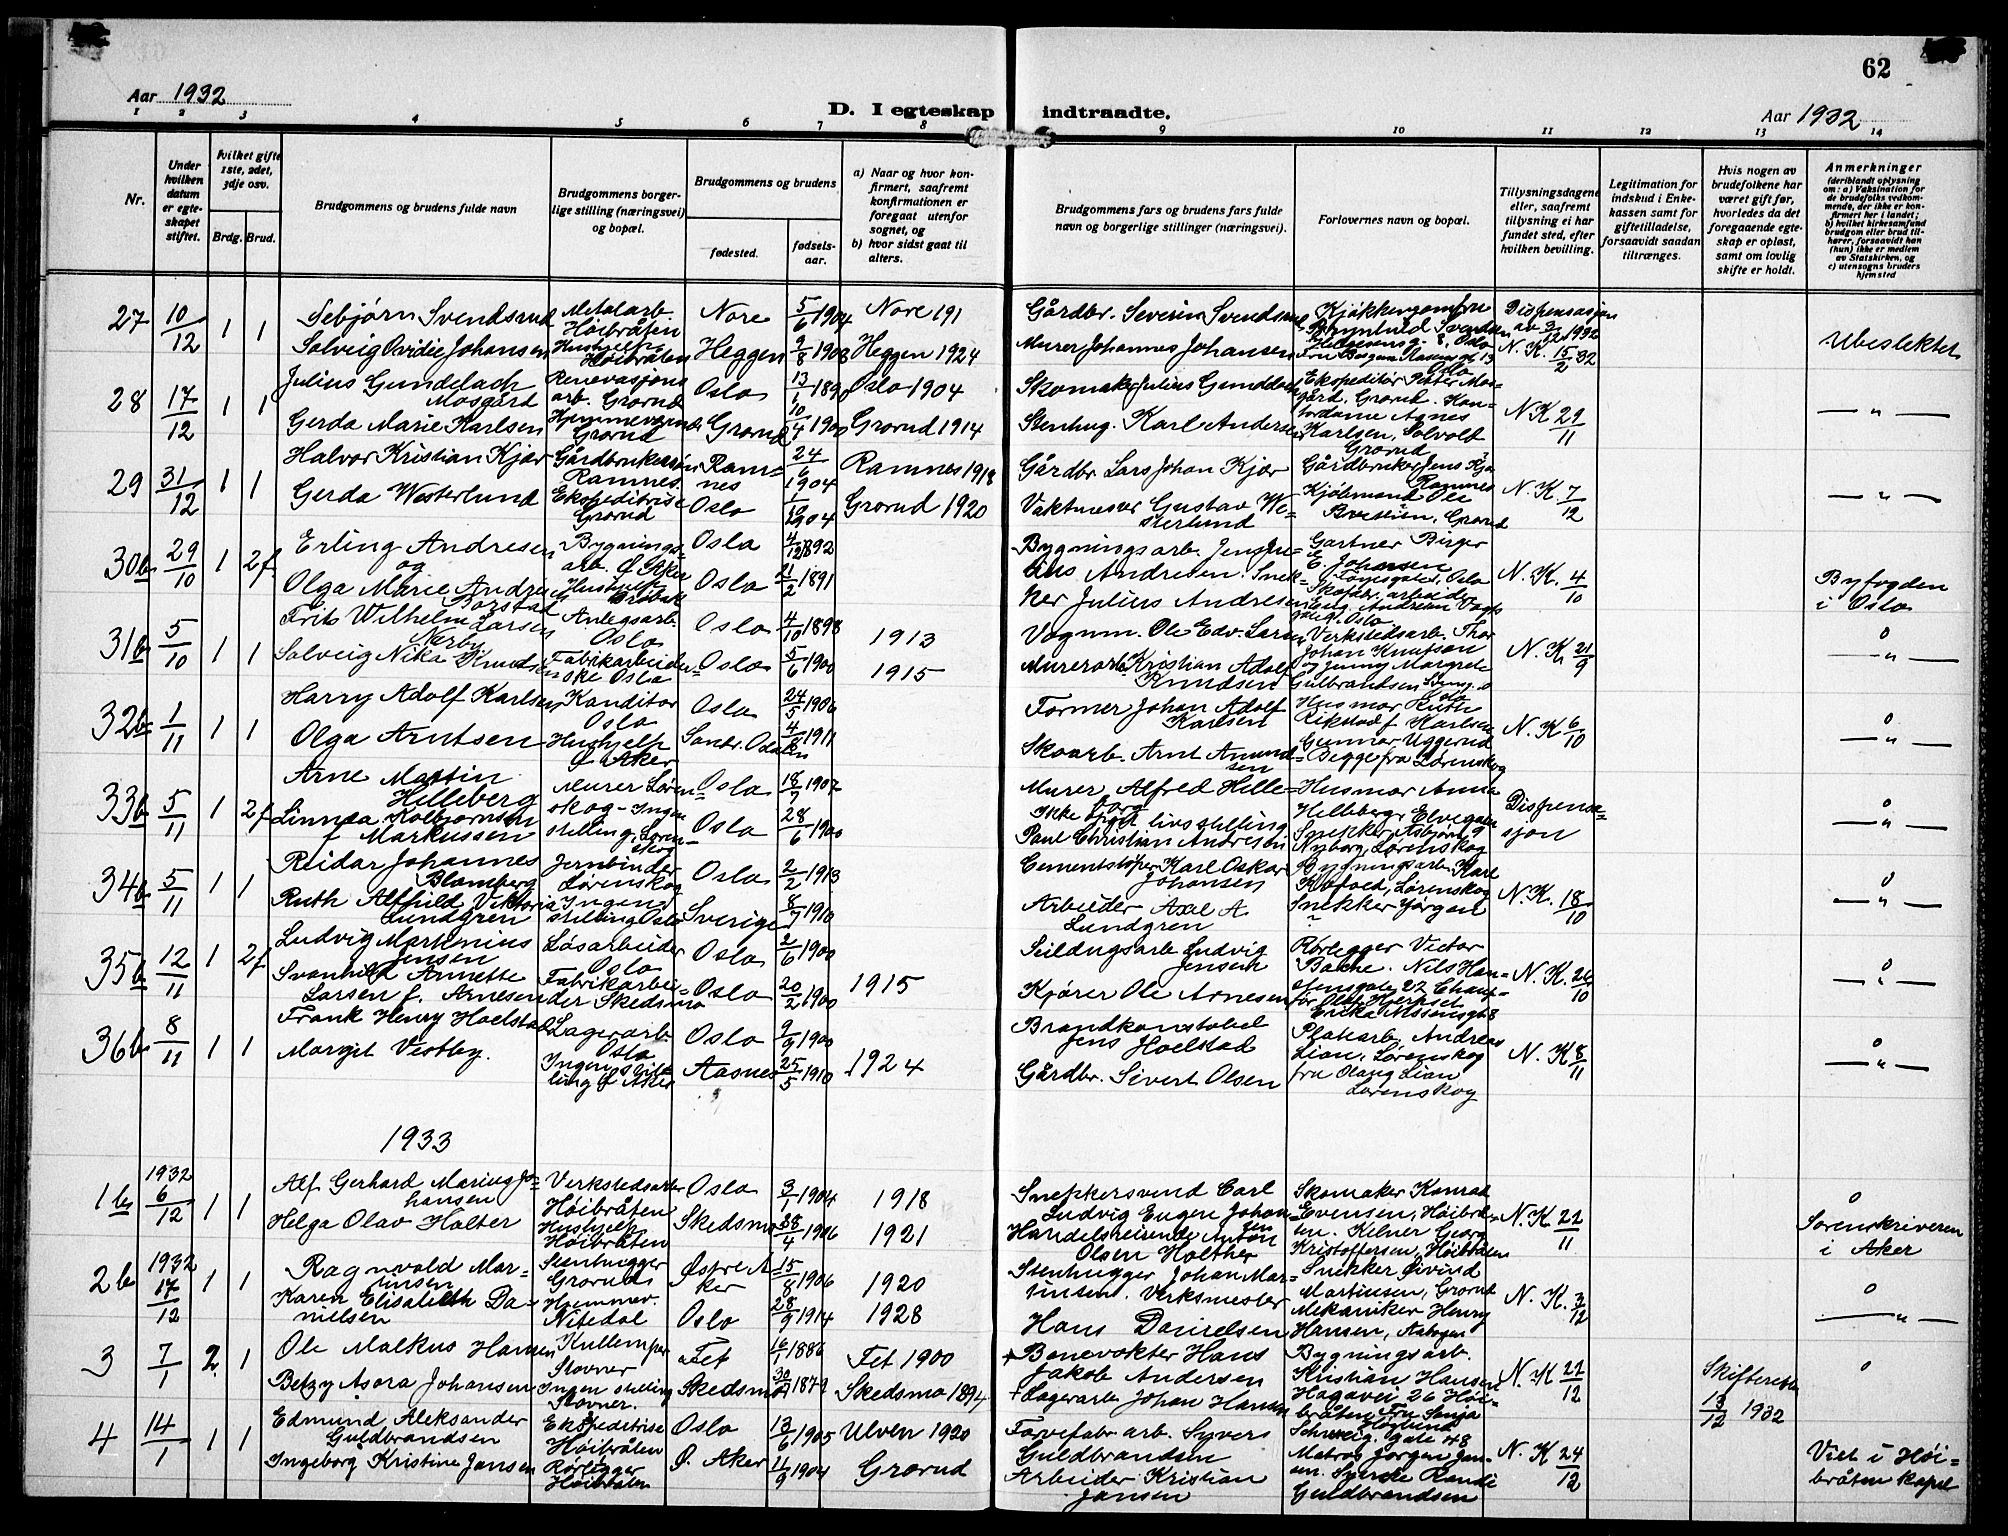 62
Aar 1932
D. I egteskap indtraadte.
Aar 1932
1 2 3 4 5 6 7 8 9 10 11 12 13 14
Nr.
Under hvilken datum er egteskapet stiftet.
hvilket gifte 1ste, 2det, 3dje osv.
Brdg. Brud.
Brudgommens og brudens fulde navn
Brudgommens borgerlige stilling (næringsvei) og bopæl.
Brudgommens og brudens
fødested.
fødselsaar.
a) Naar og hvor konfirmert, saafremt konfirmationen er foregaat utenfor sognet, og
b) hvor sidst gaat til alters.
Brudgommens fars og brudens fars fulde navn og borgerlige stillinger (næringsvei).
Forlovernes navn og bopæl.
Tillysningsdagene eller, saafremt tillysning ei har fundet sted, efter hvilken bevilling.
Legitimation for indskud i Enkekassen samt for giftetilladelse, forsaavidt saadan tiltrænges.
Hvis nogen av brudefolkene har været gift før, hvorledes da det foregaaende egteskap er opløst, samt om lovlig skifte er holdt.
Anmerkninger
(deriblandt oplysning om: a) Vaksination for de brudefolks vedkommende, der ikke er konfirmert her i landet; b) hvilket kirkesamfund brudgom eller brud tilhører, forsaavidt han (hun) ikke er medlem av Statskirken, og c) utensogns bruders hjemsted
27 10/12 1 1 Sebjørn Svendsrud Metalarb. Høibråten Nore 5/6 1904 Nore 191 Gårdbr. Severin Svendsrud Dispensasjon
Solveig Ovidie Johansen Hushjelp Høibråten Heggen 9/8 1903 Heggen 1924 Murer Johannes Johansen N.K. 15/2 32 Ubeslektet
28 17/12 1 1 Julius Gundelach Mosgård Renovasjons arb. Grorud Oslo 13/1 Oslo 1904 Skomaker Julius Ekspeditør Petter Mosgård, Grorud. N.K. 29/11 — " —
Gerda Marie Karlsen Grorud Grorud Grorud 1914 Stenhug. Karl Andersen Agnes Karlsen, Solvolt Grorud
29 31/12 1 1 Halvor Kristian Kjær Ramnes Ramnes 24/6 1904 Ramnes 1918 Gårdbr. Lars Johan Kjær Gårdbruker Jens Kjær Ramnes N.K. 7/12 — " —
Gerda Westerlund Ekspeditrise Grorud Oslo 1904 Grorud 1920 Gustav Westerlund Kjøbmand Ole Grorud
30b 29/10 1 2f. Erling Andresen og Bygningsarb. Ø. Aker Oslo 4/12 1892 Bygningsarb. Andresen. Gartner Birger E. Johansen N.K. 4/10 Byfogden i Oslo
Olga Marie Hushjelp Oslo 21/2 1891 Snekker Julius Andresen
31b 5/10 1 1 Frits Wilhelm Larsen Nærby Anlegsarb. Oslo Oslo 4/10 1898 1913 Vognm. Ole Edv. Larsen Verkstedsarb. Thor Johan Knutson N.K. 21/9 — " —
Solveig Nika Knudsen Fabrikarbeiderske Oslo Oslo 5/6 1900 1915 Murerarb. Kristian Adolf Knudsen og Jenny Margrete Gulbrantsen
32b 1/11 1 1 Harry Adolf Karlsen Kanditor Oslo Oslo 24/5 1906 Former Johan Adolf Karlsen Husmor Ruth Rikstad f. Karlsen N.K. 6/10 — " —
Olga Arntsen Hushjelp Ø. Aker Søndr. Odalen 1911 Skoarb. Arnt Amundsen Gunnar Uggerud Begge fra Lørenskog
33b 5/11 1 2f Arne Martin Helleberg Murer Lørenskog Oslo 18/7 1907 Murer Alfred Helleberg Husmor Anna Helleberg, Elvegaten Dispensasjon — " —
Linnea Kolbjørnsen f. Markussen Ingen stilling, Lørenskog Oslo 28/6 1900 Ikke livsstilling. Paul Christian Andresen Snekker Asbjørn Nyborg, Lørenskog
34b 5/11 1 1 Reidar Johannes Blomberg Jernbinder Lørenskog Oslo 2/2 1913 Cementstøper Karl Oskar Johansen Bygningsarb. Karl Lørenskog N.K. 18/10 — " —
Ruth Alfhild Viktoria Lundgren Ingen stilling Oslo Sverige 8/7 1910 Arbeider Axel A. Lundgren Snekker Jørgen ?
35b 12/11 1 2f Ludvig Martenius Jensen Løsarbeider Oslo Oslo 2/6 1900 Seildugsarb. Ludvig Jensen Rørlegger Victor Bakke. N.K. 26/10 — " —
Svanhild Annette Larsen f. Arnesen Fabrikarbeider Skedsmo Oslo 20/2 1900 1915 Kjører Ole Arnesen
36b 8/11 1 1 Frank Henry Hoelstad Lagerarb. Oslo Oslo 2/9 1900 Brandkonstabel Jens Hoelstad Platearb. Andreas Lian, Lørenskog N.K. 8/11 — " —
Margit Vestby. Ingen stilling Ø. Aker Aasnes 25/5 1910 1924 Gårdbr. Sivert Olsen fru Olaug Lian Lørenskog
1933
1b 1932 6/12 1 1 Alf Gerhard Marius Johansen Verkstedsarb. Høibråten Oslo 3/1 1904 1918 Snekkersvend Carl Ludvig Eugen Johansen Skomaker Konrad Evensen, Høibråten. N.K. 22/11 Sorenskriveren i Aker
Helga Olav Holter Hushjelp Høibråten Skedsmo 28/4 1906 1921 Handelsreisende Anton Olsen Holther Kelner Georg Kristoffersen, Høibråten
2b 1932 17/12 1 1 Ragnvald Martinsen Stenhugger Grorud Østre Aker 15/8 1906 1920 Stenhugger Johan Martinsen. Snekker Øivind Martinsen, Grorud N.K. 3/12 — " —
Karen Elisabeth Danielsen Hjemmev. Nitedal Oslo 28/9 1914 1928 Verksmester Hans Danielsen Mekaniker Henry Hansen,
3 7/1 2. 1 Ole Malkus Hansen Stovner Fet 1886 Fet 1900 + Banevokter Hans Jakob Andersen Bygningsarb. Kristian Hansen N.K. 22/12 Skifterett 13/12 1932
Betzy Asora Johansen Ingen stilling Stovner. Skedsmo Skedsmo 1894 + Lagerarb. Johan Hansen Hagavei 26 Høibråten
4 14/1 1 1 Edmund Aleksander Guldbrandsen Ekspeditrise Høibråten Oslo 13/6 1905 Ulven 1920 Farvefabr. arb. Syvers Guldbrandsen N.K. 24/12 Viet i Høibråten kapel
Ingeborg Kristine Jansen Rørlegger Høibråten Ø. Aker 1904 Grorud Arbeider Kristian Jansen Matros Jørgen Jansen. Randi Guldbrandsen